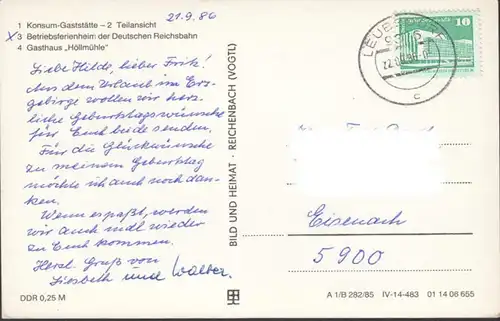 1 Konsum-Gaststätte – 2 Teilansicht
21.9.86
x3 Betriebsferienheim der Deutschen Reichsbahn
4 Gasthaus „Höllmühle"
Liebe Hilde, lieber Fritz!
Aus dem Urlaub im Erz-
gebirge wollen wir herz-
liche Geburtstagswünsche
für Euch beide senden.
Für die Glückwünsche
zu meinem Geburtstag
möchte ich auch noch dan-
ken.
Wenn es paßt, werden
wir auch mal wieder
zu Euch kommen.
Herzl. Gruß von
Lisbeth und Walter.
DDR 0,25 M
BILD UND HEIMAT · REICHENBACH (VOGTL)
10
c
Eisenach
5900
A 1/B 282/85 IV-14-483 01 14 06 655